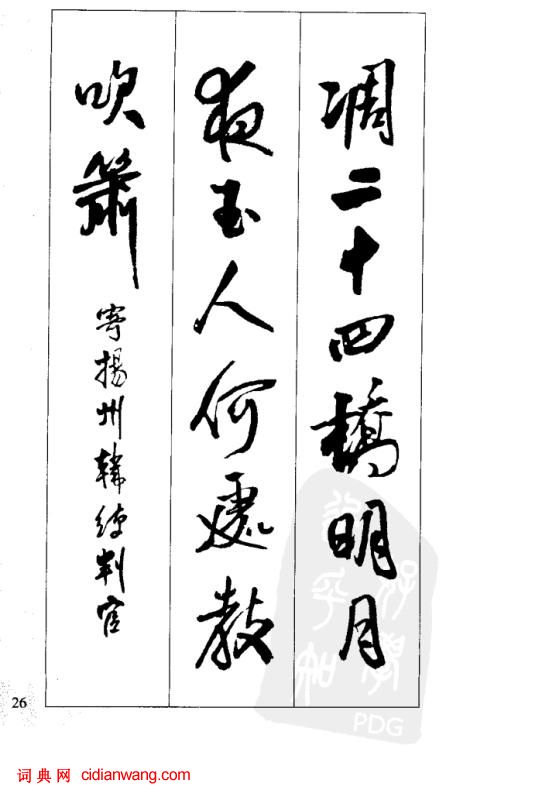 凋二十四橋明月
夜玉人何處教
吹簫
寄揚州韓綽判官
26
PDG
词典网 cidianwang.com